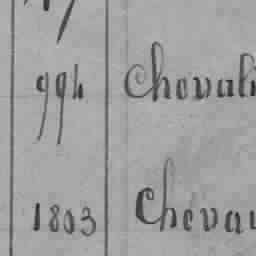 994 Chevali
1803 Cheval